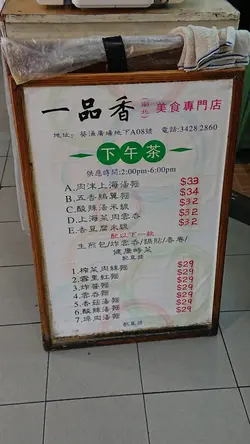 一品香(湖北)美食專門店
地址: 葵涌廣場地下A08號 電話:3428 2860
下午茶
供應時間:2:00pm-6:00pm
A.肉沫上海湯麵 $33
B.五香鷄翼麵 $34
C.酸辣湯米線 $32
D.上海菜肉雲吞 $32
E.香豆腐米線 $32
配以下一款
生煎包/炸雲吞/鍋貼/春卷/
健康時菜
配豆漿
1.榨菜肉絲麵 $29
2.雪里紅麵 $29
3.炸醬麵 $29
4.雲吞麵 $29
5.香菇湯麵 $29
6.酸辣湯麵 $29
7.絲肉湯麵 $29
配豆漿